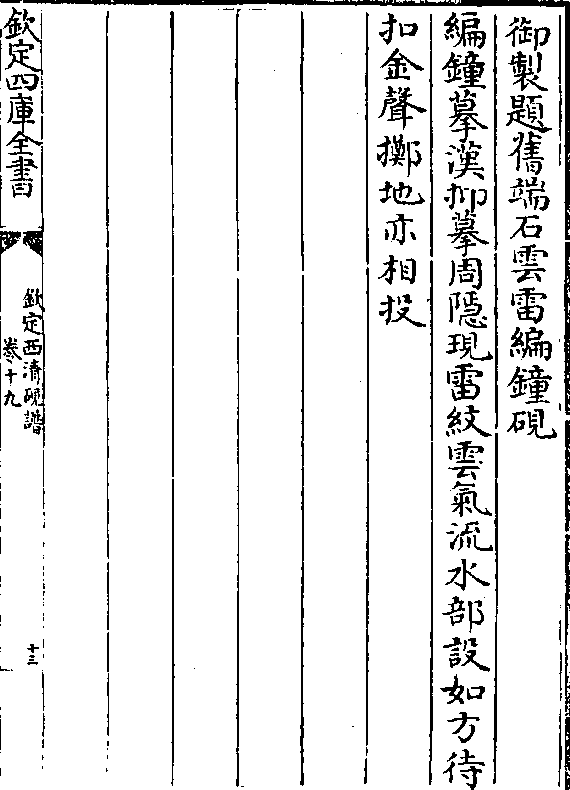 御製題舊端石雲雷編鐘硯
編鐘摹漢抑摹周隱現雷紋雲氣流水部設如方待
扣金聲擲地亦相投
欽定四庫全書
欽定西清硯譜
卷十九
十三